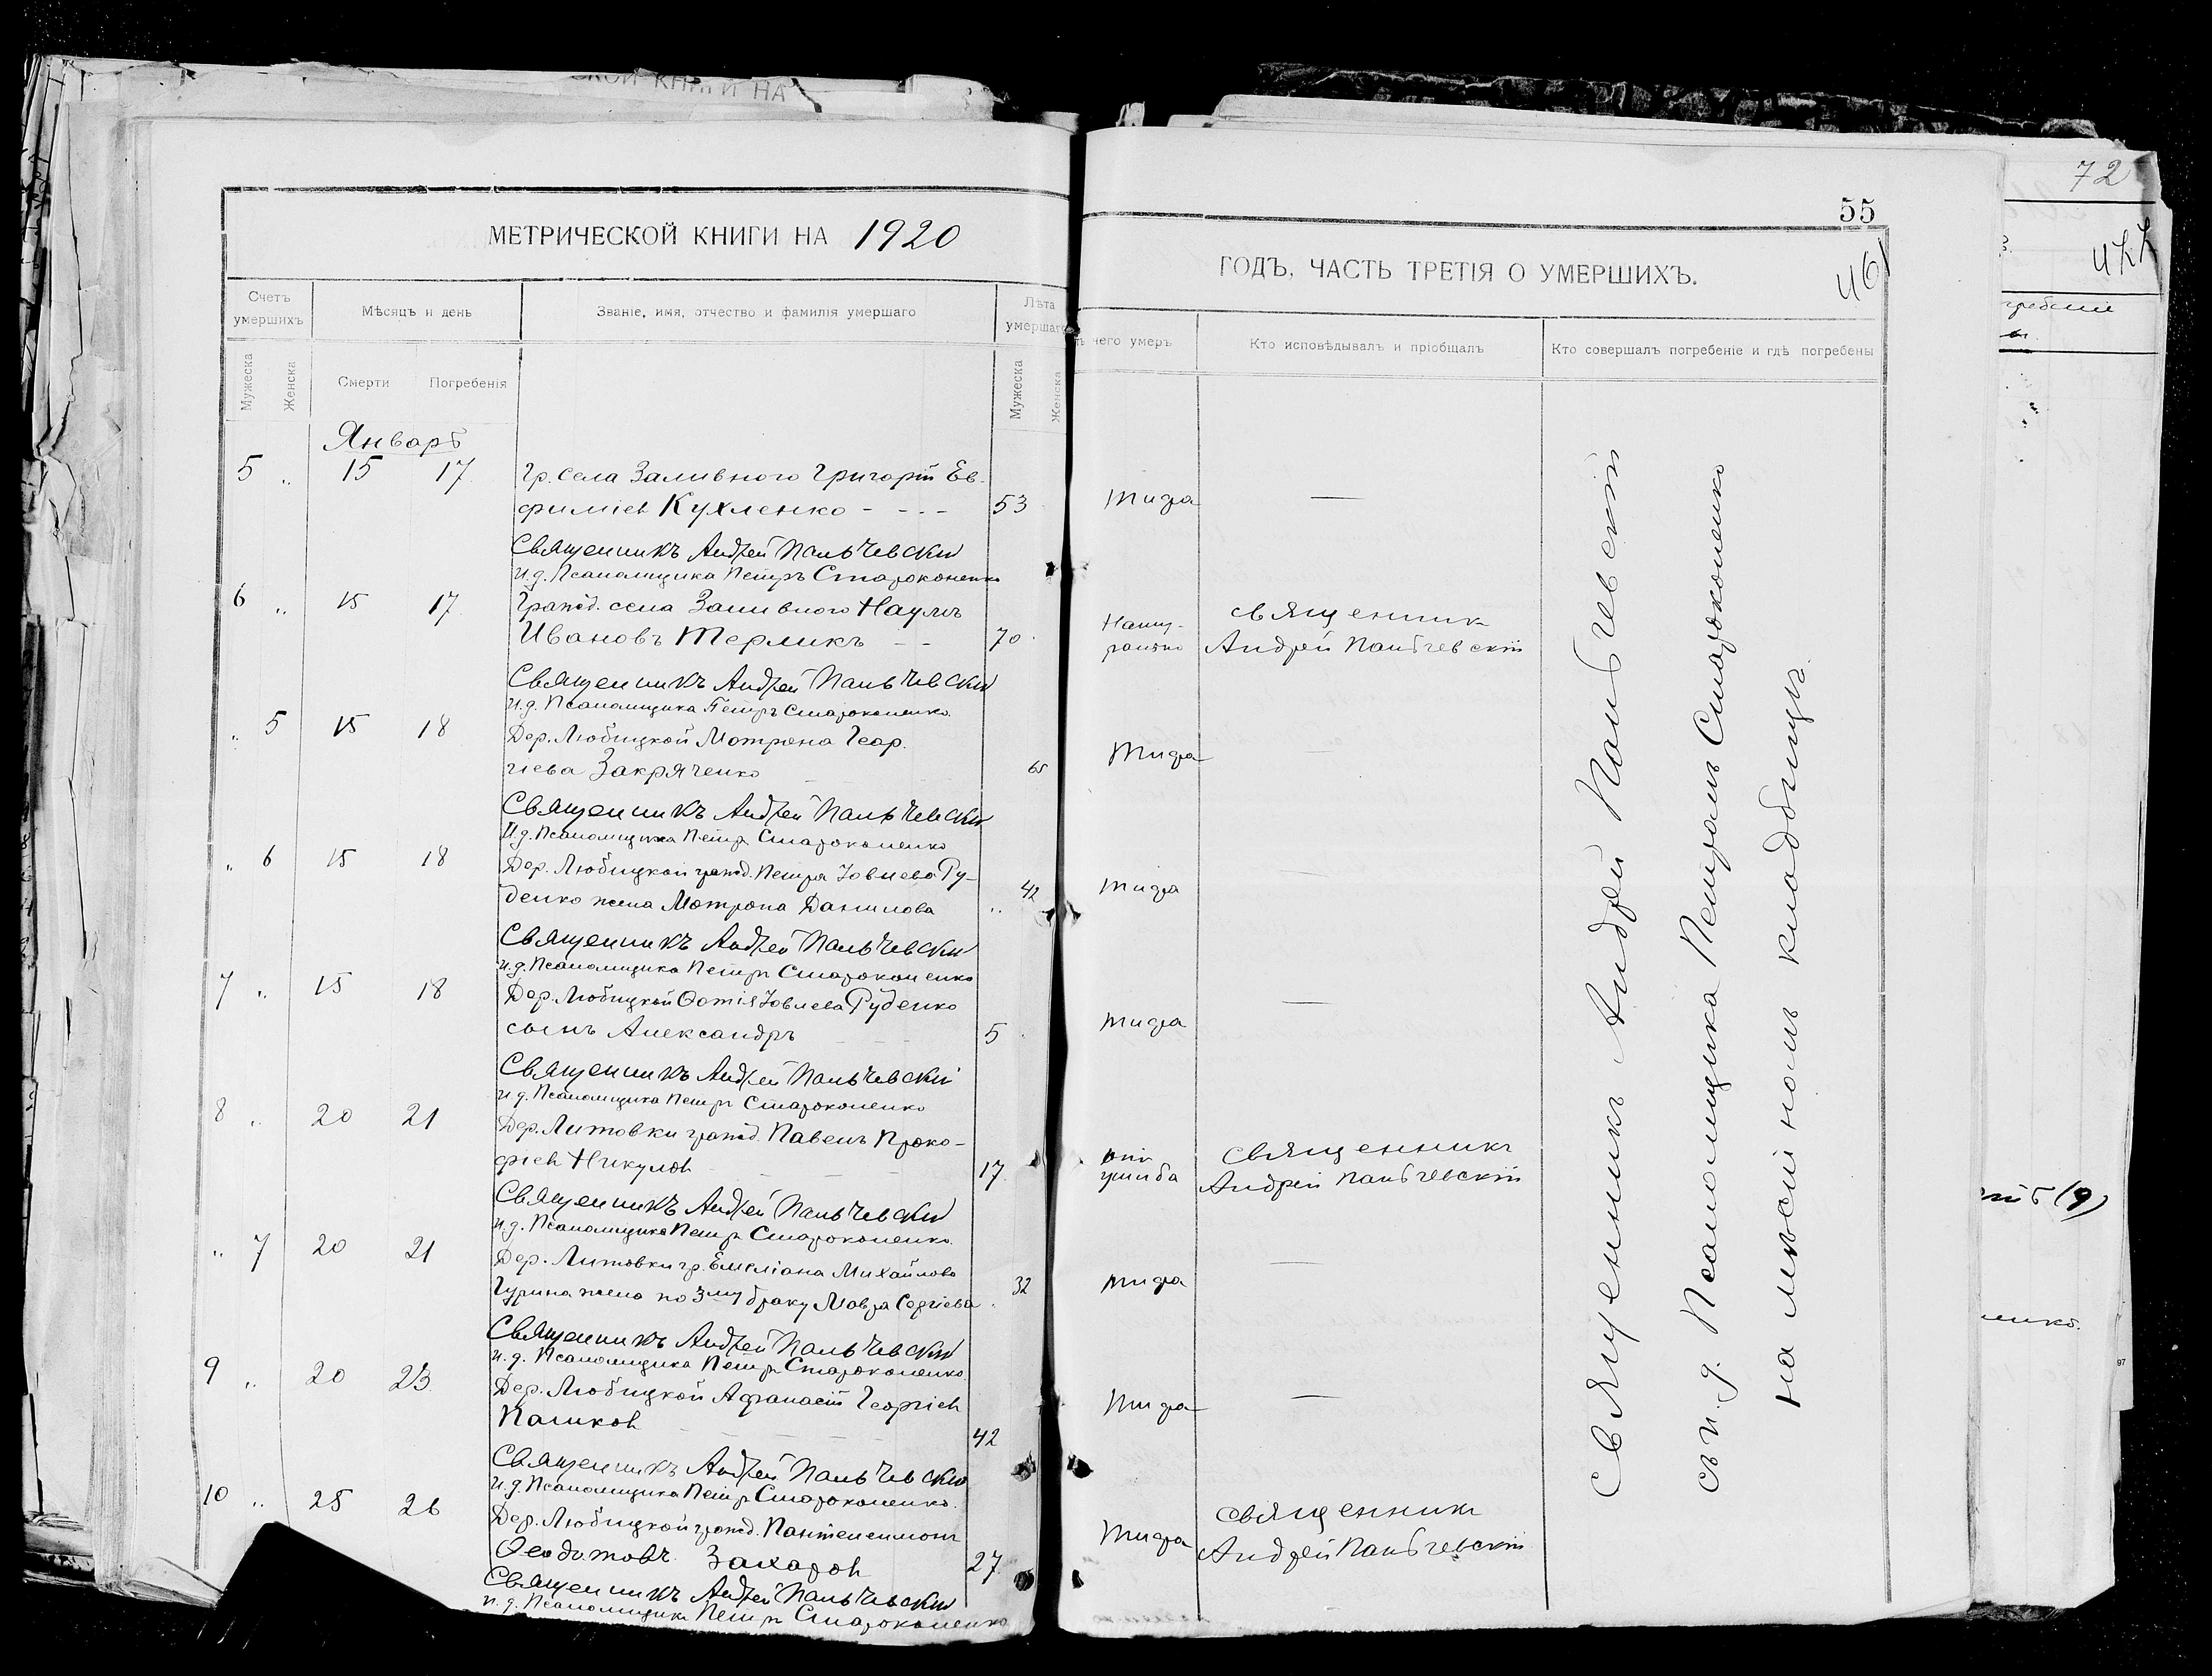 СКОЙ КНИГИ НА
72
55
МЕТРИЧЕСКОЙ КНИГИ НА 1920
ГОДЪ, ЧАСТЬ ТРЕТІЯ О УМЕРШИХЪ.
Счетъ умершихъ
Мѣсяцъ и день
Званіе, имя, отчество и фамилія умершаго
Лѣта умершаго
чего умеръ
Кто исповѣдывалъ и пріобщалъ
Кто совершалъ погребеніе и гдѣ погребены
Мужеска
Женска
Смерти
Погребенія
Мужеска
Женска
Январь
5 " 15 17 Гр. села Заливного Григорій Ев-
фиміевъ Кухленко - - - - 53 тифа —
Священникъ Андрей Пальчевскій
И.д. Псаломщика Петръ Староконенко
6 " 15 17 Гражд. села Заливного Наумъ
Ивановъ Терликъ - - 70 Священникъ Андрей Пальчевскій
Священникъ Андрей Пальчевскій
И.д. Псаломщика Петръ Староконенко
" 5 15 18 Дер. Любицкой Мотрона Геор-
гіева Закряченко 65 Тифа —
Священникъ Андрей Пальчевскій
И.д. Псаломщика Петръ Староконенко
" 6 15 18 Дер. Любицкой гражд. Петра Іовлева Ру-
денко жена Мотрона Данилова " 42 тифа —
Священникъ Андрей Пальчевскій
И.д. Псаломщика Петръ Староконенко
7 " 15 18 Дер. Любицкой Фотія Іовлева Руденко
сынъ Александръ 5 тифа —
Священникъ Андрей Пальчевскій
И.д. Псаломщика Петръ Староконенко
8 " 20 21 Дер. Литовки гражд. Павелъ Проко-
фіевъ Никуловъ 17 отъ ушиба Священникъ Андрей Пальчевскій
Священникъ Андрей Пальчевскій
И.д. Псаломщика Петръ Староконенко
" 7 20 21 Дер. Литовки гр. Емеліана Михайлова
Гурина жена по 3му браку Мавра Сергіева 32 тифа —
Священникъ Андрей Пальчевскій
И.д. Псаломщика Петръ Староконенко
9 " 20 23 Дер. Любицкой Афанасій Георгіевъ
42 Тифа —
Священникъ Андрей Пальчевскій
И.д. Псаломщика Петръ Староконенко
10 " 25 26 Дер. Любицкой гражд. Пантелеимонъ
Феодотовъ Захаровъ 27 Тифа Священникъ Андрей Пальчевскій
Священникъ Андрей Пальчевскій
И.д. Псаломщика Петръ Староконенко
Священникъ Андрей Пальчевскій
съ и.д. Псаломщика Петромъ Староконенко
на мѣстномъ кладбищѣ.